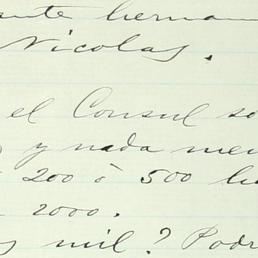 herman
Nicolas.
el Consul so
y nada men
200 ó 500
2000.
mil? Podr